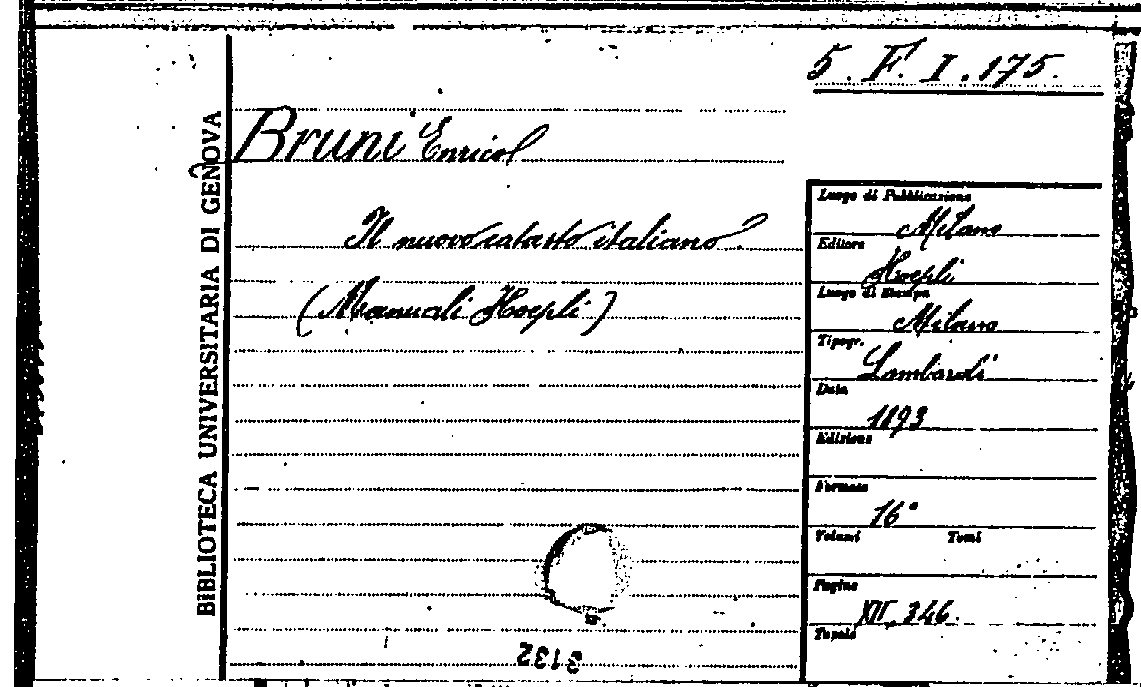 5. F. I. 175.
BIBLIOTECA UNIVERSITARIA DI GENOVA
Bruni Enrico
Il nuovo catasto italiano.
(Manuali Hoepli)
Luogo di Pubblicazione
Milano
Editore
Hoepli
Luogo di Stampa
Milano
Tipogr.
Lombardi
Data
1893
Edizione
Formato
16°
Volumi Tomi
Pagine
XII, 346.
Tavole
3132